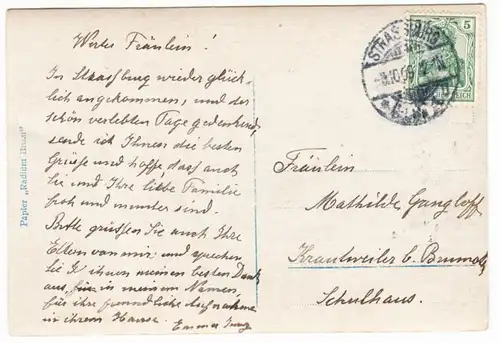 Wertes Fräulein!
In Strassburg wieder glück
lich angekommen, und der
schön verlebten Tage gedenkend,
sende ich Ihnen die besten
Grüsse und hoffe dass auch
Sie und Ihre liebe Familie
froh und munter sind.
Bitte grüssen Sie auch Ihre
Eltern von mir und sprechen
Sie ihnen meinen besten Dank
aus, für in meinem Namen,
für ihre freundliche Aufnahme
in ihrem Hause.
Emma Jung
Papier „Radium Brom"
STRASSBURG
5
REICH
Fräulein
Mathilde Gangloff
Krautweiler b. Brumath
Schulhaus.